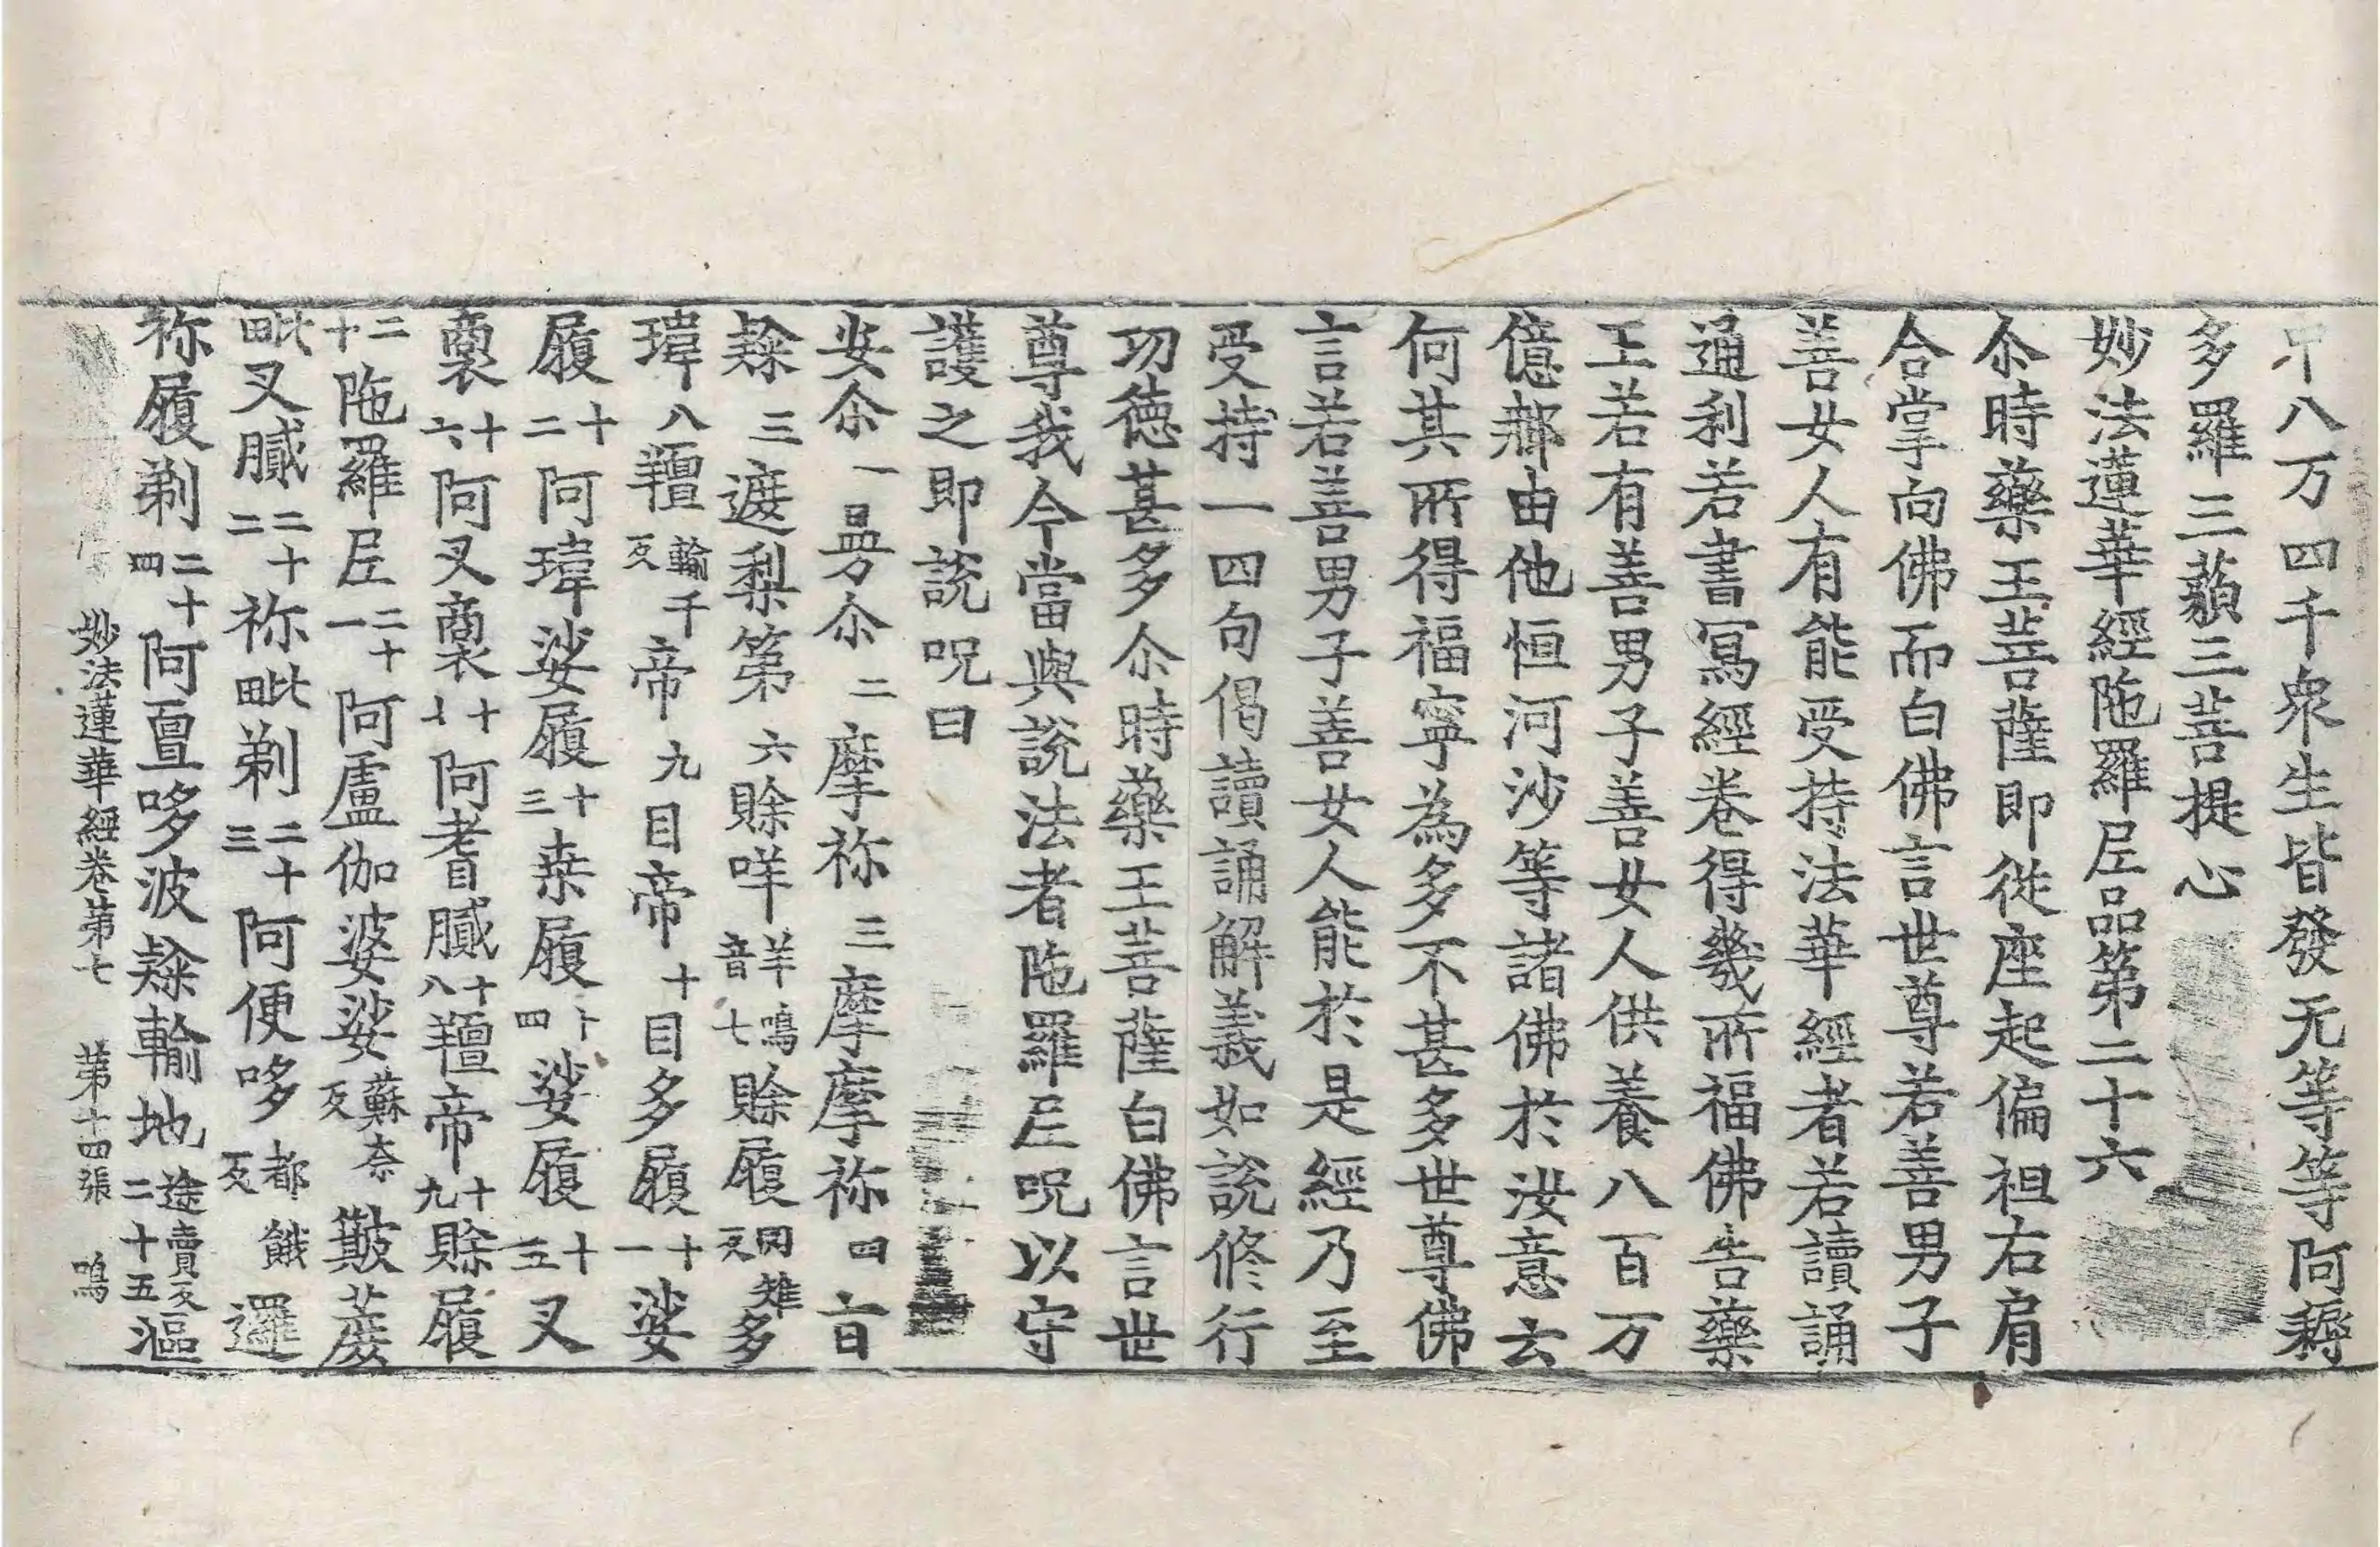 中八万四千衆生皆發无等等阿耨
多羅三藐三菩提心
妙法蓮華經陁羅尼品第二十六
尒時藥王菩薩即從座起偏袒右肩
合掌向佛而白佛言世尊若善男子
善女人有能受持法華經者若讀誦
通利若書寫經卷得幾所福佛告藥
王若有善男子善女人供養八百万
億那由他恒河沙等諸佛於汝意云
何其所得福寧為多不甚多世尊佛
言若善男子善女人能於是經乃至
受持一四句偈讀誦解義如說修行
功德甚多尒時藥王菩薩白佛言世
尊我今當與說法者陁羅尼呪以守
護之即說呪曰
安尒一曼尒二摩祢三摩摩祢四旨
隸三遮梨第六賒咩羊鳴音七賒履冈雉反多
瑋八羶輸千反帝九目帝十目多履十一娑
履十二阿瑋娑履十三桒履十四娑履十五叉
裔十六阿叉裔十七阿耆膩十八羶帝十九賒履
二十陁羅尼二十一阿盧伽婆娑蘇奈反簸蔗
毗叉膩二十二祢毗剃二十三阿便哆都餓反邏
祢履剃二十四阿亶哆波隸輸地途賣反二十五漚
妙法蓮華經卷第七 第十四張 鳴